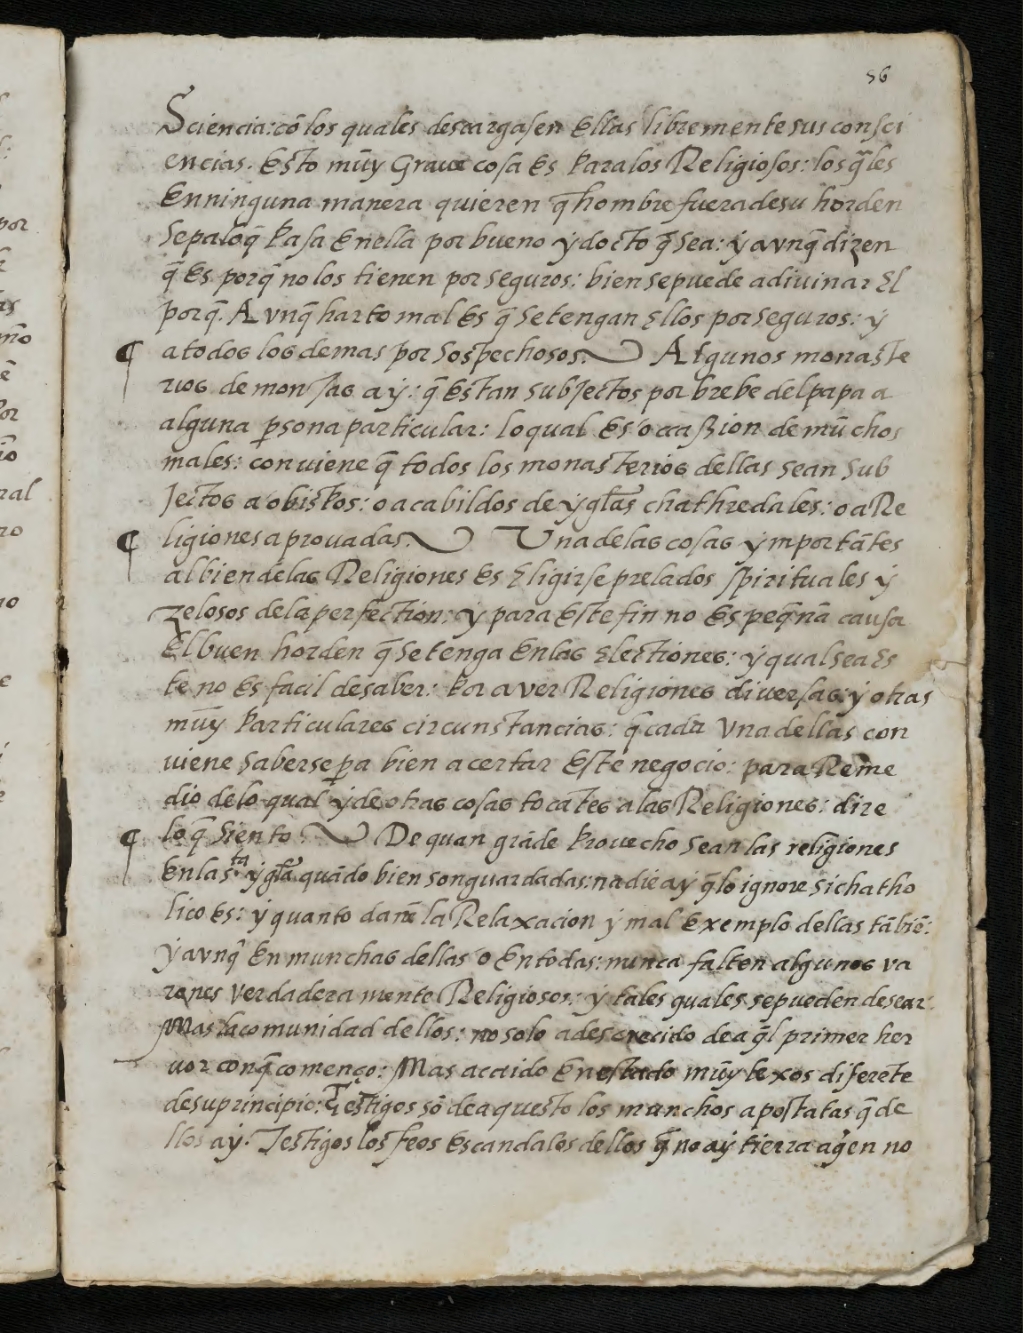 56
Sciencia: cõ los quales descargasen Ellas libremente sus consci
encias. Esto mũy Graue cosa Es Para los Religiosos: los q̃les
En ninguna manera quieren q̃ hombre fuera de su horden
Sepa loq̃ Pasa En ella por bueno ẏ docto q̃ sea: ẏ avnq̃ dizen
q̃ Es porq̃ no los tienen por seguros: bien se puede adiuinar El
porq̃. Avnq̃ harto mal Es q̃ se tengan Ellos por seguros: ẏ
¶ a todos los demas por sospechosos. Algunos monaste
rios de monjas aẏ: q̃ Estan subjectos por brebe del papa a
alguna p̱sona particular: lo qual Es occasion de mũchos
males: conviene q̃ todos los monasterios dellas sean sub
jectos a obispos: o a cabildos de ẏgl̃as chathredales: o a Re
¶ ligiones aprouadas. Una de las cosas ẏmportãtes
al bien de las Religiones Es Eligirse prelados spirituales ẏ
zelosos de la perfection: ẏ para Este fin no Es peq̃na causa
El buen horden q̃ se tenga En las Electiones: ẏ qual sea Es
te no Es facil de saber: Por aver Religiones diversas ẏ otras
mũy Particulares circunstancias: q̃ cada Una dellas con
viene saberse p̱a bien acertar Este negocio: para Reme
dio de lo qual ẏ de otras cosas tocãtes a las Religiones: dire
¶ lo q̃ siento. De quan grãde Prouecho sean las religiones
En la sta ẏgl̃a quãdo bien son guardadas: nadie aẏ q̃ lo ignore si chatho
lico es: ẏ quanto dañe la Relaxacion ẏ mal Exemplo dellas tãbiẽ:
ẏ avnq̃ En munchas dellas o En todas: nunca falten algunos va
rones verdaderamente Religiosos: ẏ tales quales se pueden desear.
Mas la comunidad dellos: no solo a descrecido de aq̃l primer her
uor conq̃ començo: Mas a caido En estado mũy lexos diferẽte
de su principio: Testigos sõ de aquesto los munchos apostatas q̃ de
llos aẏ. Testigos los feos Escandalos dellos q̃ no aẏ tierra a q̃en no